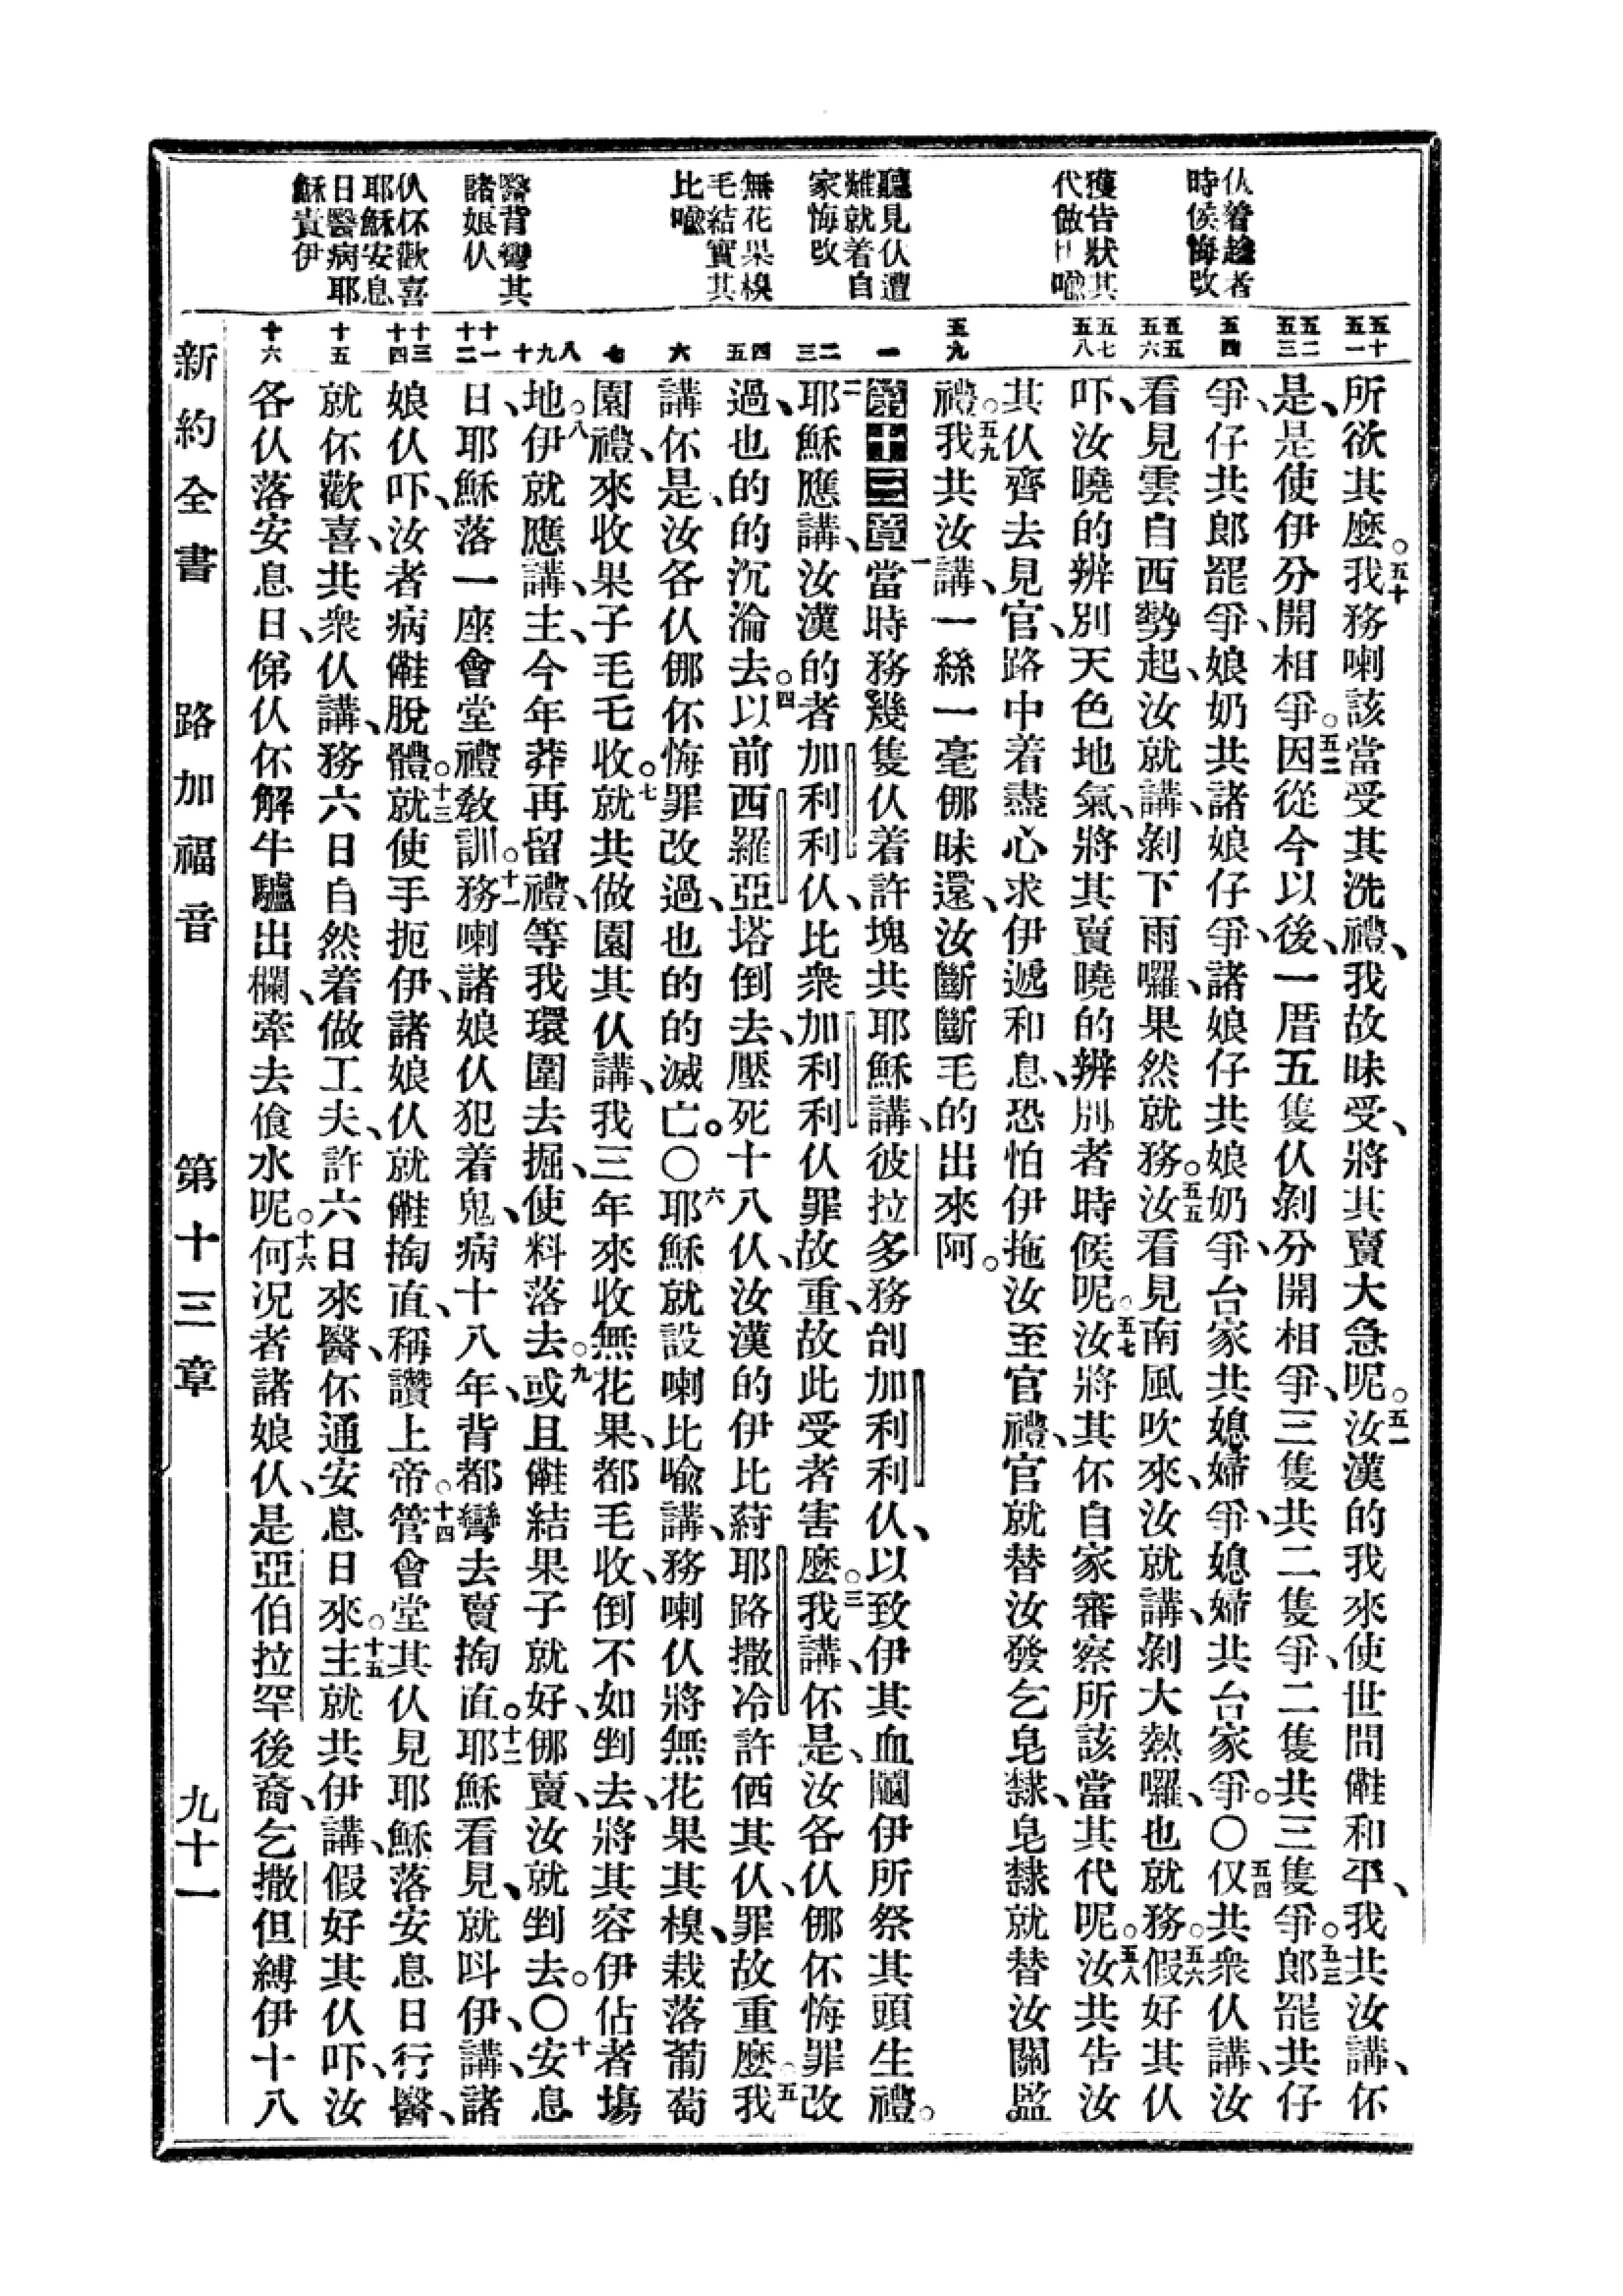 仈着趂者
時侯悔改
獲告狀其
代做比喩
聽見仈遭
難就着自
家悔改
無花果模
毛結實其
比喩
醫背彎其
諸娘仈
仈伓歡喜
耶穌安息
日醫病耶
穌責伊
五十
五一
五二
五三
五四
五五
五六
五七
五八
五九
一
二
三
四
五
六
七
八
九
十
十一
十二
十三
十四
十五
十六
所欲其麽。五十我務喇該當受其洗禮、我故昧受、將其賣大急呢。五一汝漢的我來使世間㑻和平、我共汝講、伓
是、是使伊分開相爭。五二因從今以後、一厝五隻仈剝分開相爭、三隻共二隻爭、二隻共三隻爭。五三郞罷共仔
爭、仔共郎罷爭、娘奶共諸娘仔爭、諸娘仔共娘奶爭、台家共媳婦爭、媳婦共台家爭。〇五四仅共衆仈講、汝
看見雲自西勢起、汝就講、剝下雨囉、果然就務。五五汝看見南風吹來、汝就講、剝大熱囉、也就務。五六假好其仈
吓、汝曉的辨別天色地氣、將其賣曉的辨別者時候呢。五七汝將其伓自家審察所該當其代呢。五八汝共告汝
其仈齊去見官、路中着盡心求伊遞和息、恐怕伊拖汝至官禮、官就替汝發乞皂隸、皂隸就替汝關監
禮。五九我共汝講、一絲一毫㑚昧還、汝斷斷毛的出來阿。
第十三章一當時務幾隻仈着許塊共耶穌講、彼拉多務刣加利利仈、以致伊其血𥻵伊所祭其頭生禮。
二耶穌應講、汝漢的者加利利仈、比衆加利利仈罪故重、故此受者害麽。三我講、伓是、汝各仈㑚伓悔罪改
過、也的的沉淪去。四以前西羅亞塔倒去、壓死十八仈、汝漢的伊比蒔耶路撒冷許㕭其仈、罪故重麽。五我
講伓是、汝各仈㑚伓悔罪改過、也的的滅亡。〇六耶穌就設喇比喩講、務喇仈將無花果其模、栽落葡萄
園禮、來收果子毛毛收。七就共做園其仈講、我三年來收無花果、都毛收、倒不如剉去、將其容伊佔者塲
地。八伊就應講、主、今年莽再留禮、等我環圍去掘、使料落去。九或且㑻結果子就好、㑚賣、汝就剉去。〇十安息
日、耶穌落一座會堂禮敎訓。十一務喇諸娘仈犯着鬼、病十八年、背都彎去賣掏直。十二耶穌看見、就呌伊、講、諸
娘仈吓、汝者病㑻脫體。十三就使手扼伊、諸娘仈就㑻掏直、稱讚上帝。十四管會堂其仈見耶穌落安息日行醫、
就伓歡喜、共衆仈講、務六日自然着做工夫、許六日來醫、伓通安息日來。十五主就共伊講、假好其仈吓、汝
各仈落安息日、俤仈伓解牛驢出欄、牽去飡水呢。十六何况者諸娘仈、是亞伯拉罕後裔、乞撒但縛伊十八
新約全書 路加福音 第十三章 九十一